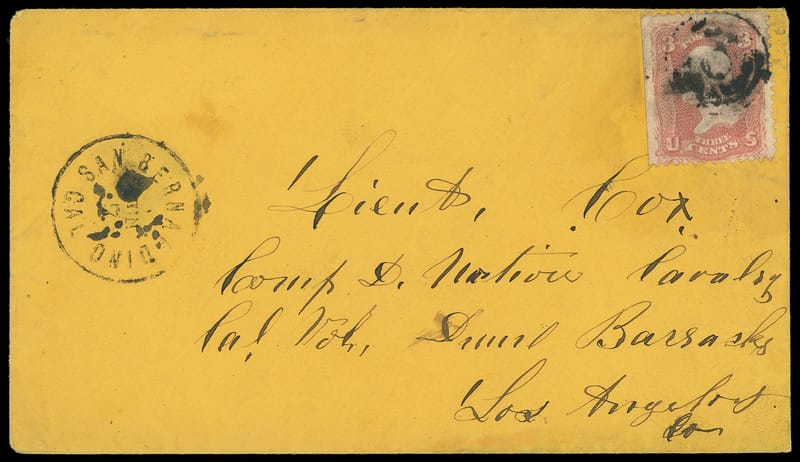 3 3
U S
THREE
CENTS
SAN BERNARDINO CAL
Lieut, Cox
Comp D. Native Cavalry
Cal, Vol, Drum Barracks
Los Angelos
Co